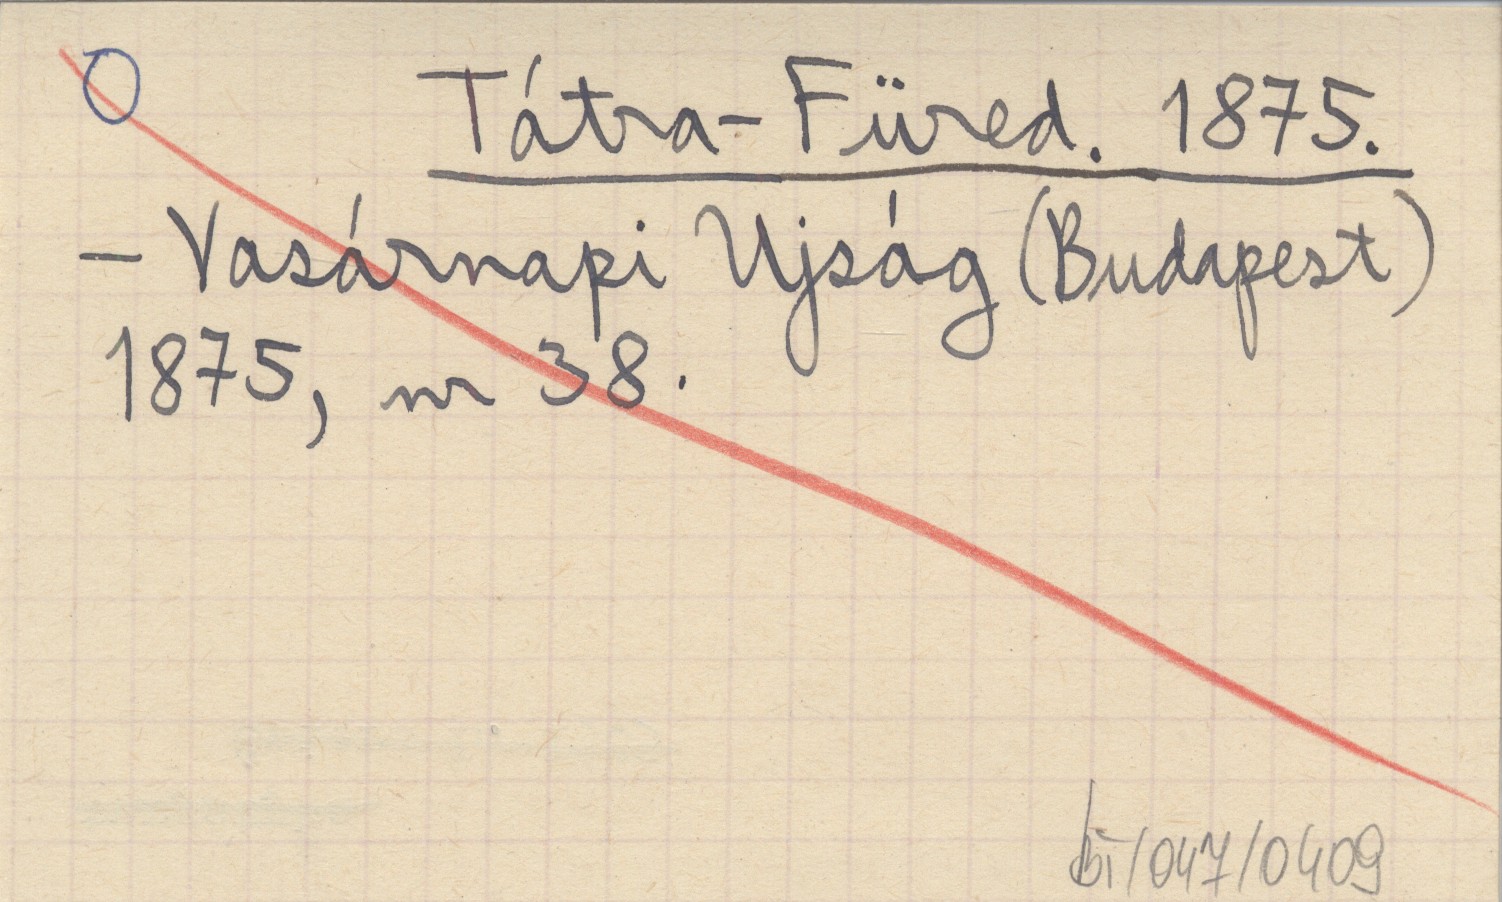 Tátra-Füred. 1875.
– Vasárnapi Ujság (Budapest)
1875, nr 38.
bi/047/0409